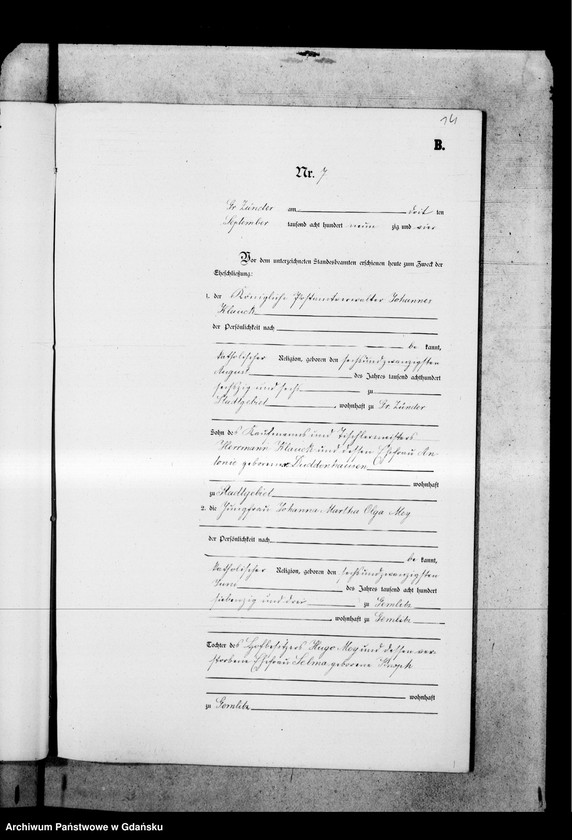 14
B.
Nr. 7
Gr. Zünder am drit ten
September tausend acht hundert neun zig und vier
Vor dem unterzeichneten Standesbeamten erschienen heute zum Zweck der
Eheschließung:
1. der Königliche Postamtsverwalter Johannes
Klauck
der Persönlichkeit nach
be kannt,
katholischer Religion, geboren den sechsundzwanzigsten
August des Jahres tausend achthundert
sechszig und sechs zu
Stadtgebiet, wohnhaft zu Gr. Zünder
Sohn des Kaufmanns und Tischlermeisters
Herrmann Klauck und dessen Ehefrau An-
tonie geborene
wohnhaft
zu Stadtgebiet
2. die Jungfrau Johanna Martha Olga Mey
der Persönlichkeit nach
be kannt,
katholischer Religion, geboren den sechsundzwanzigsten
Juni des Jahres tausend acht hundert
siebenzig und drei zu Gemlitz
, wohnhaft zu Gemlitz
Tochter des Hofbesitzers Hugo Mey und dessen ver-
storbene Ehefrau Selma geborene
wohnhaft
zu Gemlitz
Archiwum Państwowe w Gdańsku